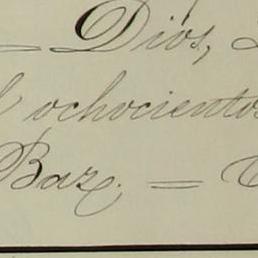 = Dios,
ochocientos
Baz. =